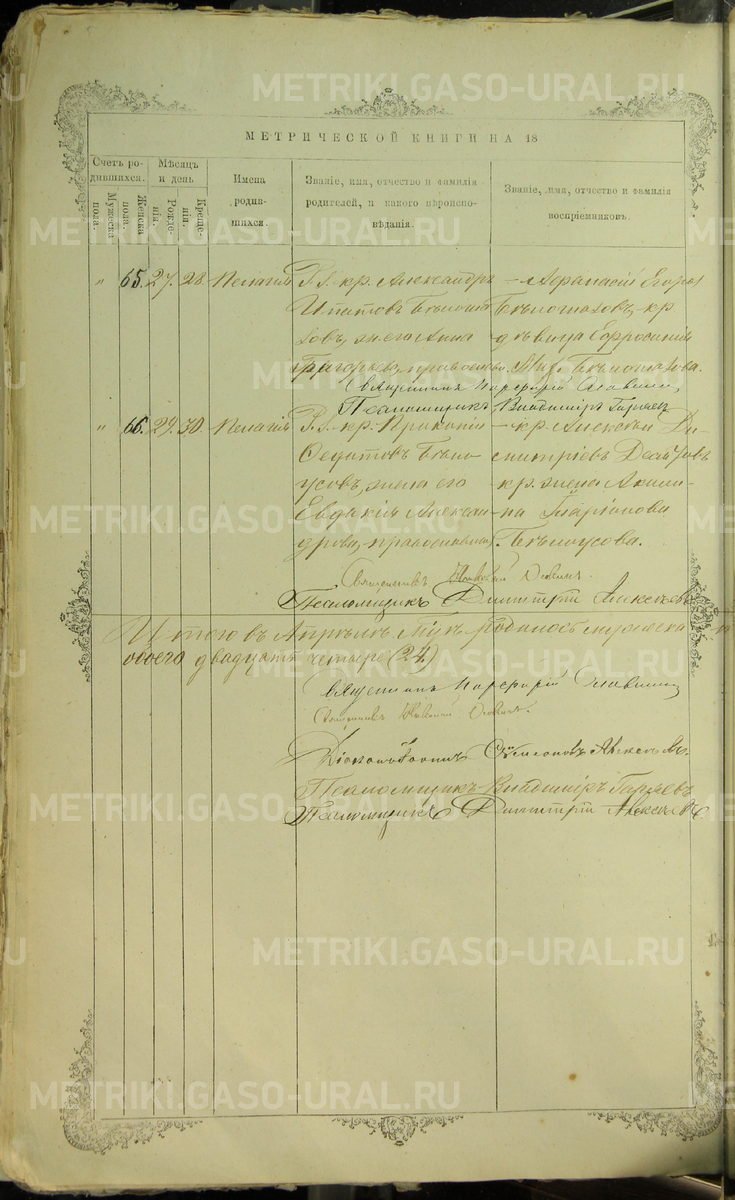 METRIKI.GASO-URAL.RU
МЕТРИЧЕСКОЙ КНИГИ НА 18
Счетъ ро-
дившихся.
Мужеска
пола.
Женска
пола.
Мѣсяцъ
и день
Рожде-
нія.
Креще-
нія.
Имена
родив-
шихся.
Званіе, имя, отчество и фамилія
родителей, и какого вѣроиспо-
вѣданія.
Званіе, имя, отчество и фамилія
воспріемниковъ.
" 65. 27. 28. Пелагія
кр. Александръ
Ипатовъ Бѣлогла
зовъ, жена Анна
Григорьева, православн.
Афанасій Егоров
Бѣлоглазовъ, кр
дѣвица Ефросинія
Бѣлоглазова.
Священникъ Порфирій Славнинъ
Псаломщикъ Владиміръ Гаряевъ
" 66. 29. 30. Пелагія
кр. Прокопій
Федотовъ Бѣло
усовъ, жена его
Евдокія Алексан
дрова, православныя
кр. Алексѣй Ди-
митріевъ
кр. жена Акили-
на Иларіонова
Бѣлоусова.
Священникъ
Псаломщикъ Димитрій Алексѣевъ
Итого въ Апрѣлѣ м-цѣ родилось мужеска
обоего двадцать четыре (24)
Священникъ Порфирій Славнинъ
Священникъ
Діаконъ Алексѣевъ.
Псаломщикъ Владиміръ Гаряевъ
Псаломщикъ Димитрій Алексѣевъ